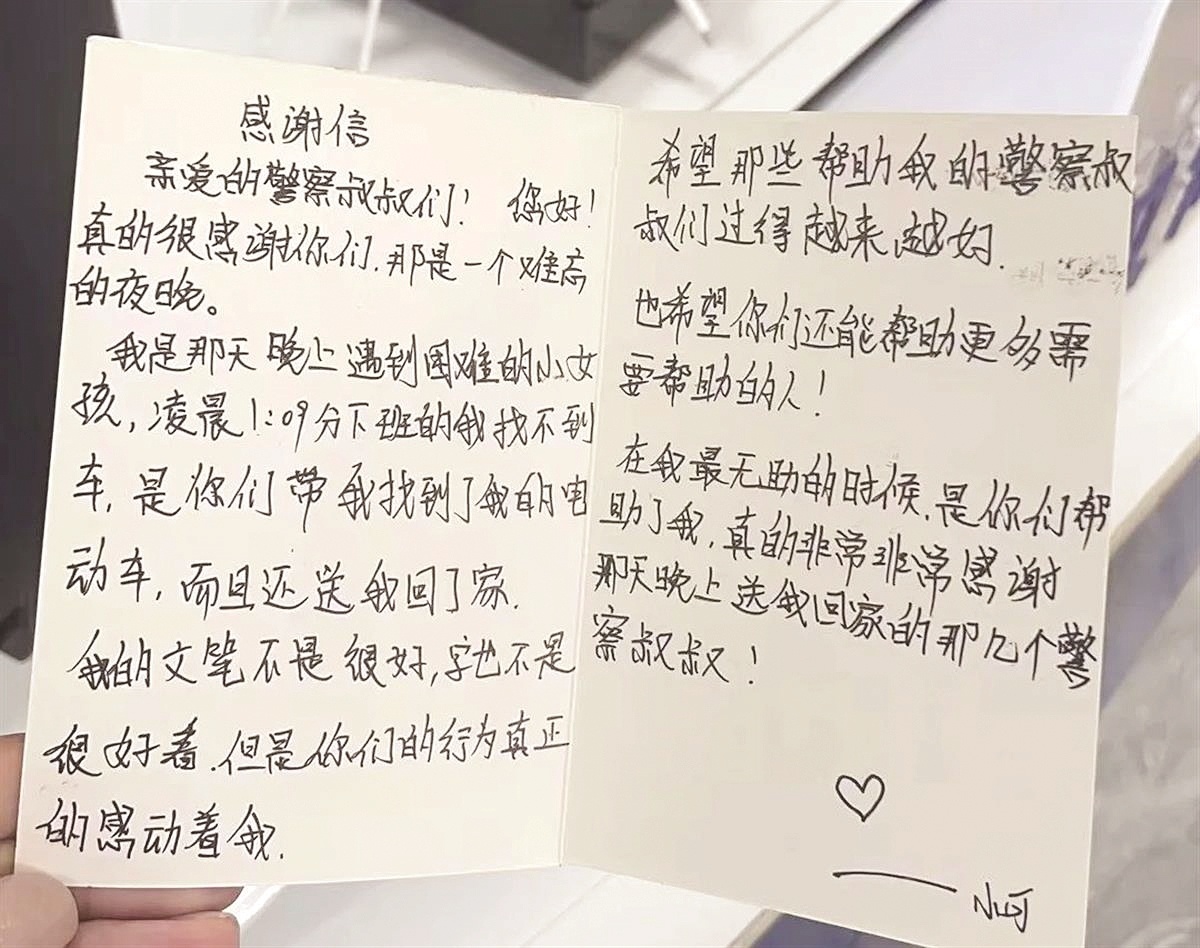 感谢信
亲爱的警察叔叔们！ 您好！
真的很感谢你们.那是一个难忘
的夜晚。
我是那天晚上遇到困难的小女
孩,凌晨1:09分下班的我找不到
车,是你们带我找到了我的电
动车,而且还送我回了家.
我的文笔不是很好,字也不是
很好看.但是你们的行为真正
的感动着我.
希望那些帮助我的警察叔
叔们过得越来越好.
也希望你们还能帮助更多需
要帮助的人！
在我最无助的时候.是你们帮
助了我,真的非常非常感谢
那天晚上送我回家的那几个警
察叔叔！